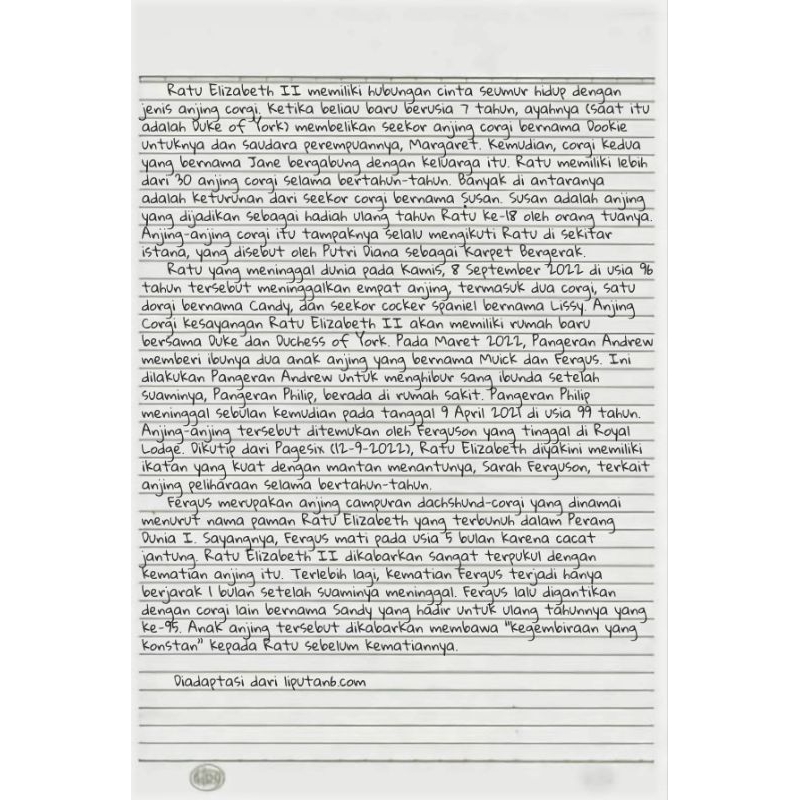 Ratu Elizabeth II memiliki hubungan cinta seumur hidup dengan
jenis anjing corgi. Ketika beliau baru berusia 7 tahun, ayahnya (saat itu
adalah Duke of York) membelikan seekor anjing corgi bernama Dookie
untuknya dan saudara perempuannya, Margaret. Kemudian, corgi kedua
yang bernama Jane bergabung dengan keluarga itu. Ratu memiliki lebih
dari 30 anjing corgi selama bertahun-tahun. Banyak di antaranya
adalah keturunan dari seekor corgi bernama Susan. Susan adalah anjing
yang dijadikan sebagai hadiah ulang tahun Ratu ke-18 oleh orang tuanya.
Anjing-anjing corgi itu tampaknya selalu mengikuti Ratu di sekitar
istana, yang disebut oleh Putri Diana sebagai Karpet Bergerak.
Ratu yang meninggal dunia pada Kamis, 8 September 2022 di usia 96
tahun tersebut meninggalkan empat anjing, termasuk dua corgi, satu
dorgi bernama Candy, dan seekor cocker spaniel bernama Lissy. Anjing
Corgi kesayangan Ratu Elizabeth II akan memiliki rumah baru
bersama Duke dan Duchess of York. Pada Maret 2022, Pangeran Andrew
memberi ibunya dua anak anjing yang bernama Muick dan Fergus. Ini
dilakukan Pangeran Andrew untuk menghibur sang ibunda setelah
suaminya, Pangeran Philip, berada di rumah sakit. Pangeran Philip
meninggal sebulan kemudian pada tanggal 9 April 2021 di usia 99 tahun.
Anjing-anjing tersebut ditemukan oleh Ferguson yang tinggal di Royal
Lodge. Dikutip dari Pagesix (12-9-2022), Ratu Elizabeth diyakini memiliki
ikatan yang kuat dengan mantan menantunya, Sarah Ferguson, terkait
anjing peliharaan selama bertahun-tahun.
Fergus merupakan anjing campuran dachshund-corgi yang dinamai
menurut nama paman Ratu Elizabeth yang terbunuh dalam Perang
Dunia I. Sayangnya, Fergus mati pada usia 5 bulan karena cacat
jantung. Ratu Elizabeth II dikabarkan sangat terpukul dengan
kematian anjing itu. Terlebih lagi, kematian Fergus terjadi hanya
berjarak 1 bulan setelah suaminya meninggal. Fergus lalu digantikan
dengan corgi lain bernama Sandy yang hadir untuk ulang tahunnya yang
ke-95. Anak anjing tersebut dikabarkan membawa "kegembiraan yang
konstan" kepada Ratu sebelum kematiannya.
Diadaptasi dari liputan6.com